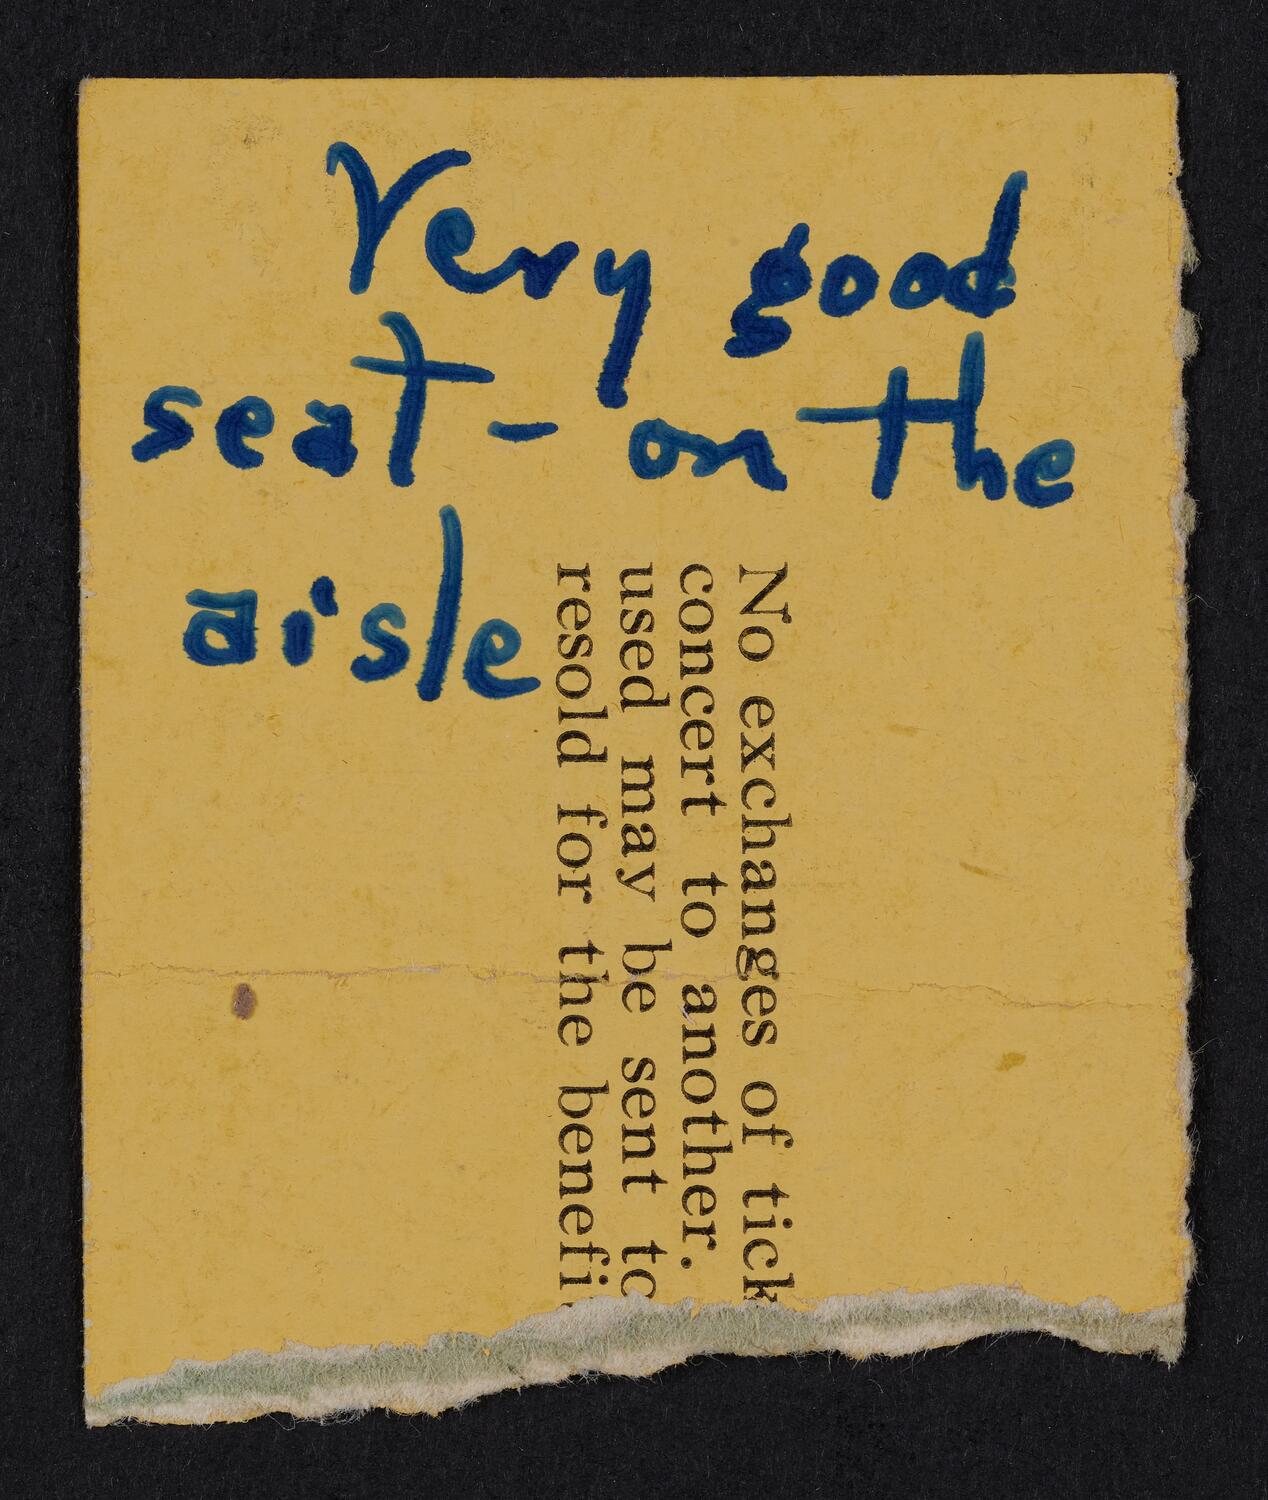 Very good
seat - on the
aisle
No exchanges of tick
concert to another.
used may be sent to
resold for the benefi